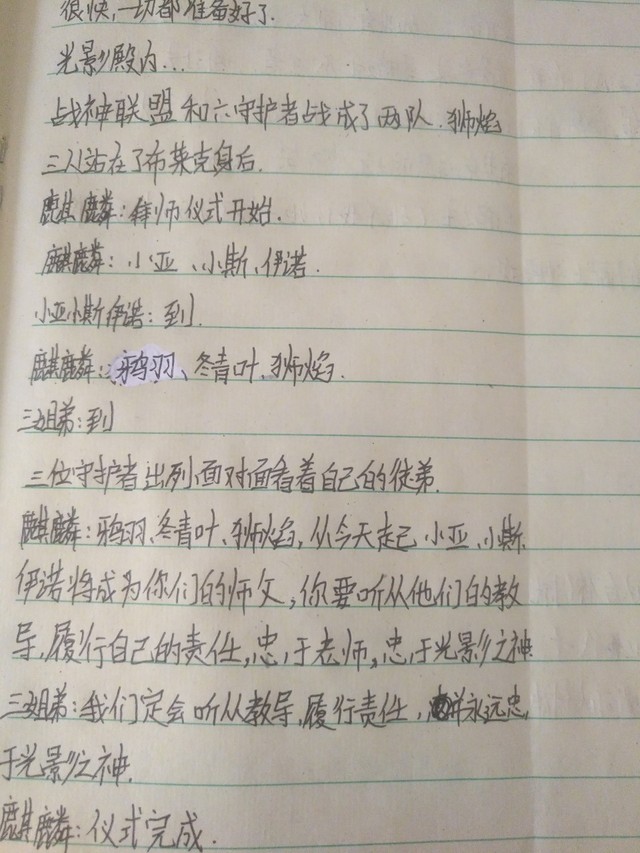 很快,一切都准备好了.
光影殿内...
战神联盟和六守护者战成了两队.狮焰
三人站在了布莱克身后.
麒麟:拜师仪式开始.
麒麟:小亚、小斯、伊诺.
小亚小斯伊诺:到.
麒麟:鸦羽、冬青叶、狮焰.
三姐弟:到
三位守护者出列,面对面看着自己的徒弟.
麒麟:鸦羽、冬青叶、狮焰,从今天起 小亚、小斯
伊诺将成为你们的师父,你要听从他们的教
导,履行自己的责任,忠于老师,忠于光影之神
三姐弟:我们定会听从教导,履行责任,并永远忠
于光影之神.
麒麟:仪式完成.